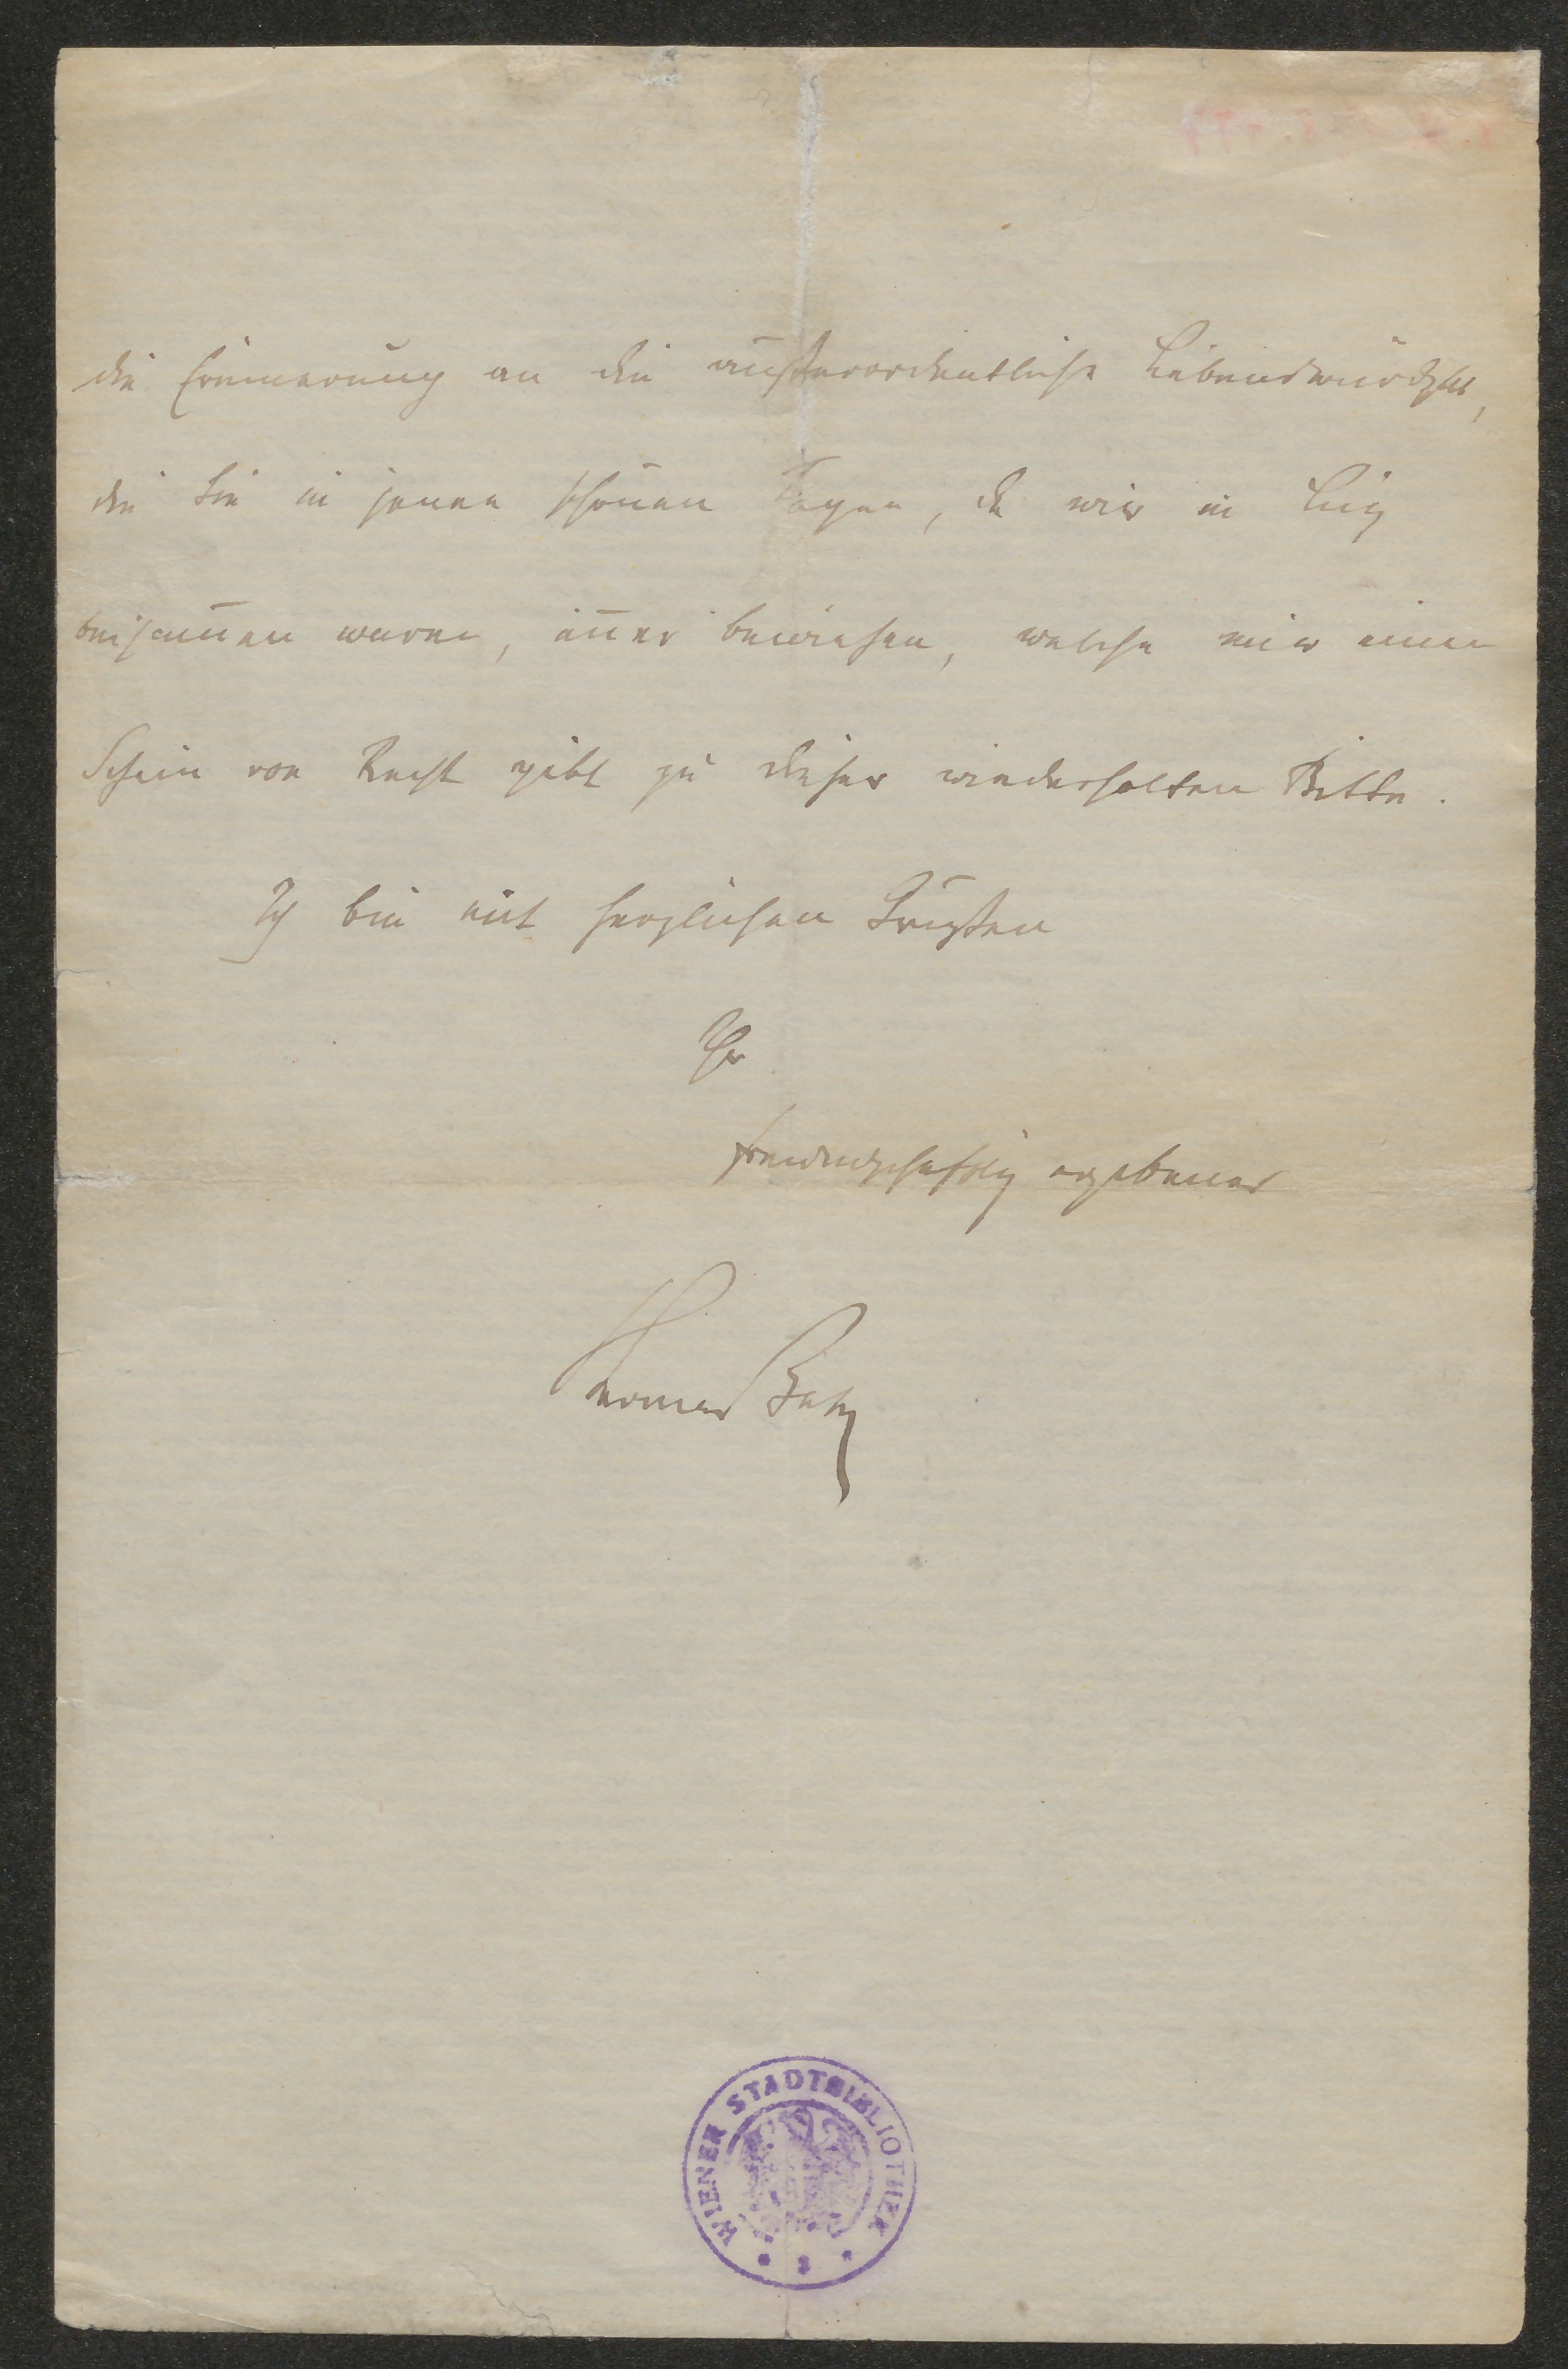 die Erinnerung an die außerordentliche Liebenswürdigkeit,
die Sie in jenen schönen Tagen, da wir in Linz
beisam̄en waren, im̄er bewiesen, welche mir einen
Schein von Recht gibt zu dieser wiederholten Bitte.
Ich bin mit herzlichen Grüßen
Ihr
freundschaftlich ergebener
Hermann Bahr
WIENER STADTBIBLIOTHEK